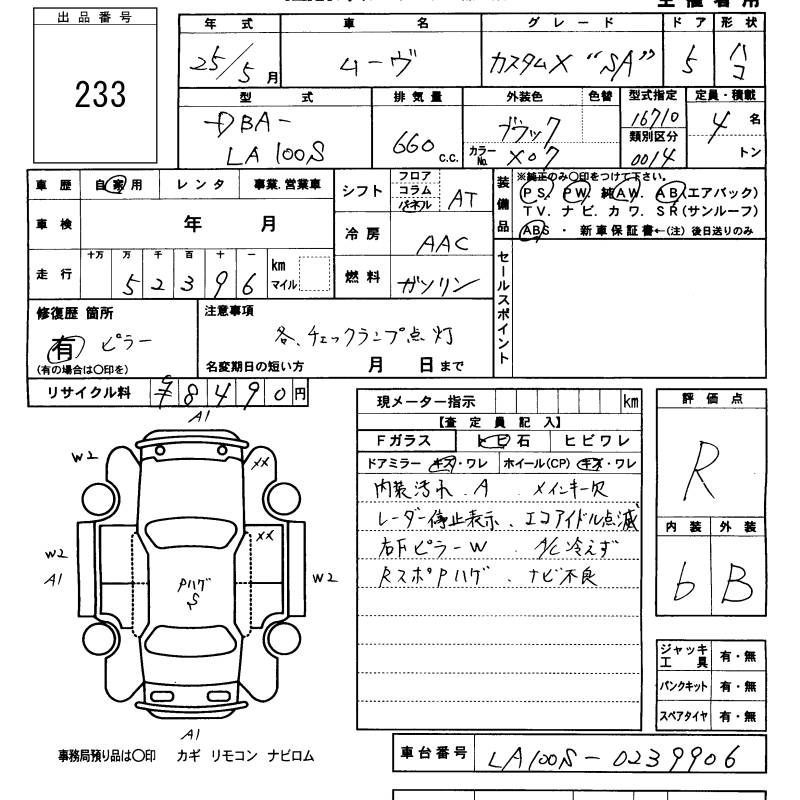 出品番号
233
年式 車名 グレード ドア 形状
25/5月 ムーヴ カスタムX "SA" 5 ハコ
型式 排気量 外装色 色替 型式指定 定員・積載
DBA- 660 c.c. ブラック 16710 4名
LA100S カラーNo. X07 類別区分 トン
0014
車歴 自家用 レンタ 事業.営業車
シフト フロア コラム パネル AT
装備品 ※純正のみ○印をつけて下さい。
PS. PW. 純AW. AB(エアバック)
TV. ナビ. カワ. SR(サンルーフ)
ABS ・ 新車保証書←(注) 後日送りのみ
車検 年 月
冷房 AAC
走行 十万 万 千 百 十 一
52396 km マイル
燃料 ガソリン
セールスポイント
修復歴 箇所
有 ピラー
(有の場合は○印を)
注意事項
各、チェックランプ点灯
名変期日の短い方 月 日まで
リサイクル料 ¥8490円
現メーター指示 km
【査定員記入】
Fガラス トビ石 ヒビワレ
ドアミラー キズ・ワレ ホイール(CP) キズ・ワレ
内装汚れ.A メインキー欠
レーダー停止表示、エコアイドル点滅
右Fピラー W A/C冷えず
RスポPハゲ、ナビ不良
評価点
R
内装 外装
b B
ジャッキ工具 有・無
パンクキット 有・無
スペアタイヤ 有・無
A1
W2
XX
XX
W2
A1
Pハゲ
S
W2
A1
事務局預り品は○印 カギ リモコン ナビロム
車台番号 LA100S-0239906